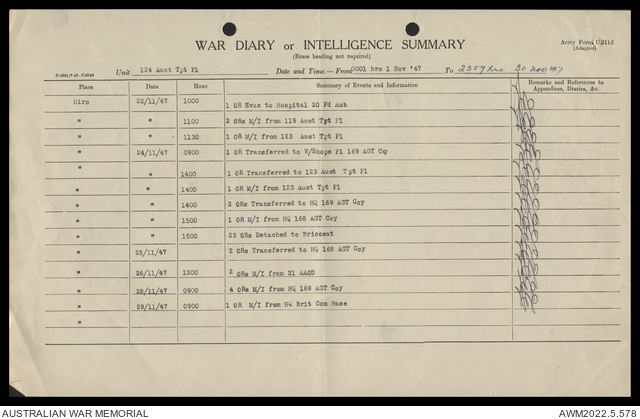 WAR DIARY or INTELLIGENCE SUMMARY
(Erase heading not required)
Army Form C.2118
(Adapted)
Unit 124 Aust Tpt Pl Date and Time.—From 0001 hrs 1 Nov '47 To 2359 hrs. 30 Nov '47
Place Date Hour Summary of Events and Information Remarks and References to Appendices, Diaries, &c.
Hiro 22/11/47 1000 1 OR Evac to Hospital 20 Fd Amb
" " 1100 2 ORs M/I from 119 Aust Tpt Pl
" " 1130 1 OR M/I from 123 Aust Tpt Pl
" 24/11/47 0900 1 OR Transferred to W/Shops Pl 169 AGT Coy
" " 1400 1 OR Transferred to 123 Aust Tpt Pl
" " 1400 1 OR M/I from 123 Aust Tpt Pl
" " 1400 2 ORs Transferred to HQ 169 AGT Coy
" " 1500 1 OR M/I from HQ 168 AGT Coy
" " 1500 23 ORs Detached to Bricosat
" 25/11/47 2 ORs Transferred to HQ 168 AGT Coy
" 26/11/47 1200 2 ORs M/I from 21 AAOD
" 28/11/47 0900 4 ORs M/I from HQ 169 AGT Coy
" 29/11/47 0900 1 OR M/I from HQ Brit Com Base
"
AUSTRALIAN WAR MEMORIAL
AWM2022.5.578